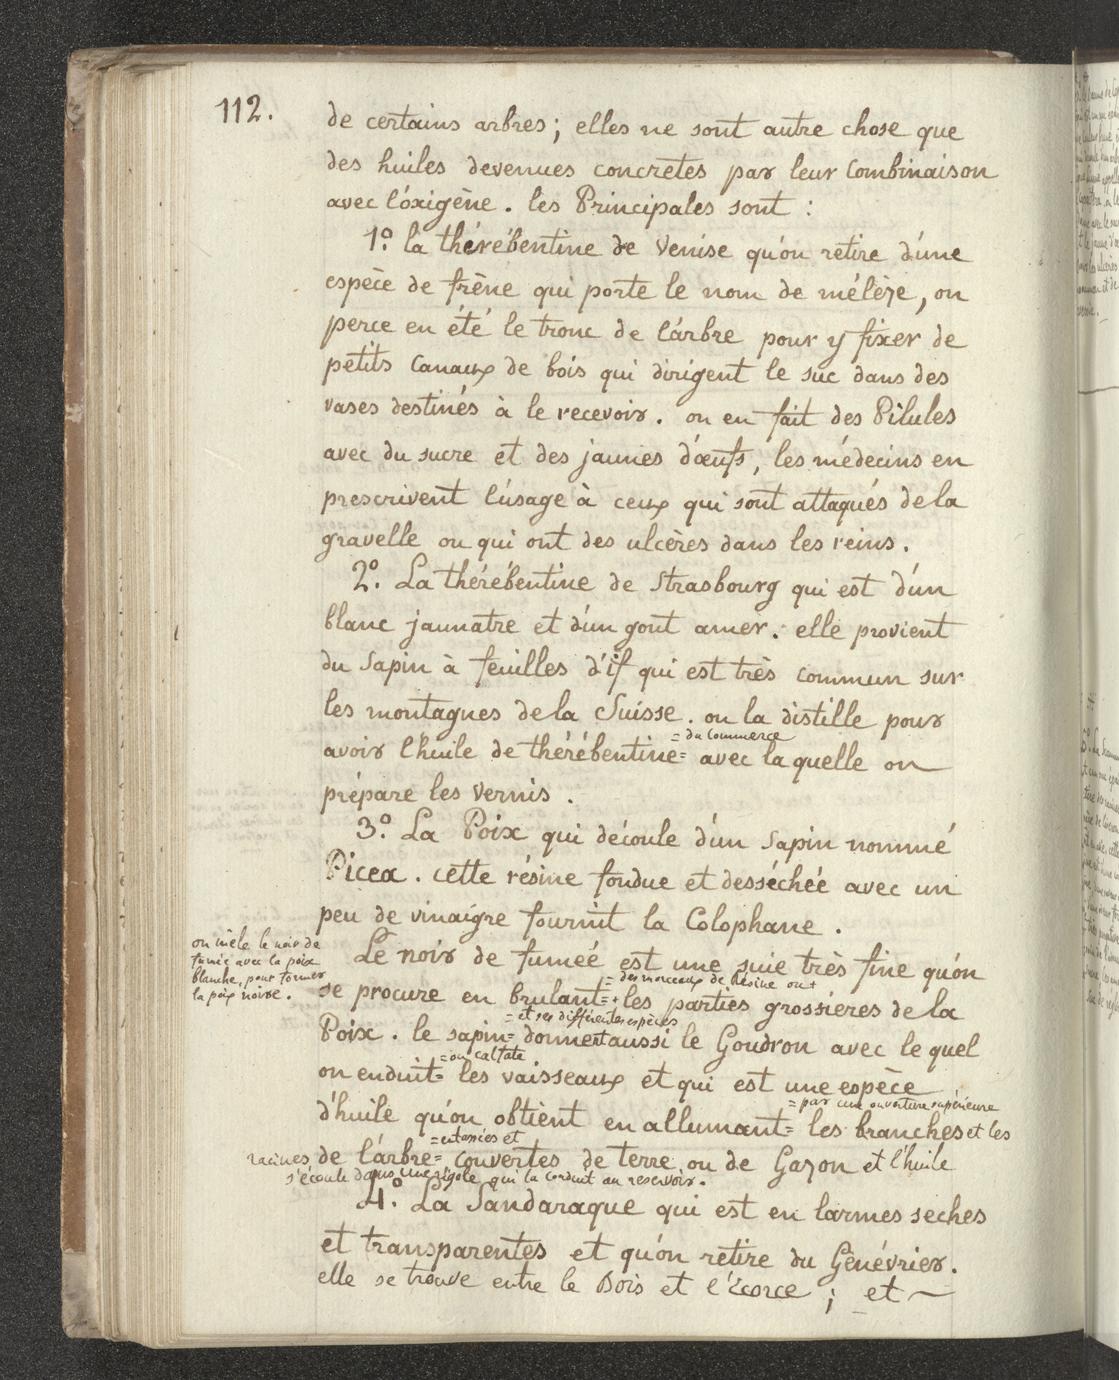 112.
de certains arbres ; elles ne sont autre chose que
des huiles devenues concretes par leur Combinaison
avec l'óxigène . les Principales sont :
1º. la thérébentine de Venise qu'on retire d'une
espèce de frêne qui porte le nom de mélèze, on
perce en été le tronc de l'árbre pour y fixer de
petits Canaux de bois qui dirigent le suc dans des
vases destinés à le recevoir . on en fait des Pilules
avec du sucre et des jaunes d'œufs, les médecins en
prescrivent l'úsage à ceux qui sont attaqués de la
gravelle ou qui ont des ulcères dans les reins .
2º. La thérébentine de Strasbourg qui est d'un
blanc jaunatre et d'un gout amer . elle provient
du Sapin à feuilles d'if qui est très commun sur
les montagnes de la Suisse . on la distille pour
= du Commerce
avoir l'huile de thérébentine= avec laquelle on
prépare les vernis .
3º. La Poix qui découle d'un Sapin nommé
Picea . cette résine fondue et desséchée avec un
peu de vinaigre fournit la Colophane .
on mêle le noir de
fumée avec la poix
blanche, pour former
la poix noire .
Le noir de fumeé est une suie très fine qu'on
= des morceaux de Résine ou +
se procure en brulant= + les parties grossieres de la
= et ses différentes espèces
Poix . le sapin= donnent aussi le Goudron avec le quel
= ou calfate
on enduit= les vaisseaux et qui est une espèce
= par une ouverture supérieure
d'huile qu'on obtient en allumant= les branches et les
= entassées et
racines de l'árbre= couvertes de terre ou de Gazon et l'huile
s'écoule dans une rigole qui la conduit au reservoir .
4º. La Sandaraque qui est en larmes seches
et transparentes et qu'on retire du Genévrier.
elle se trouve entre le Bois et l'Ecorce ; et —